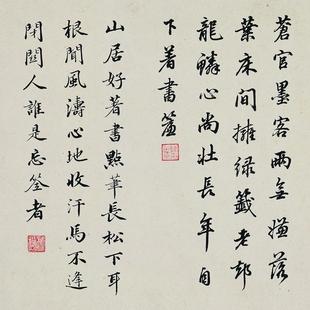 蒼官墨客兩無嫌落
葉床間擁綠籤老却
龍鱗心尚壯長年自
下着書簾
山居好著書點筆長松下耳
根聞風濤心地收汗馬不逢
閉關人誰是忘筌者